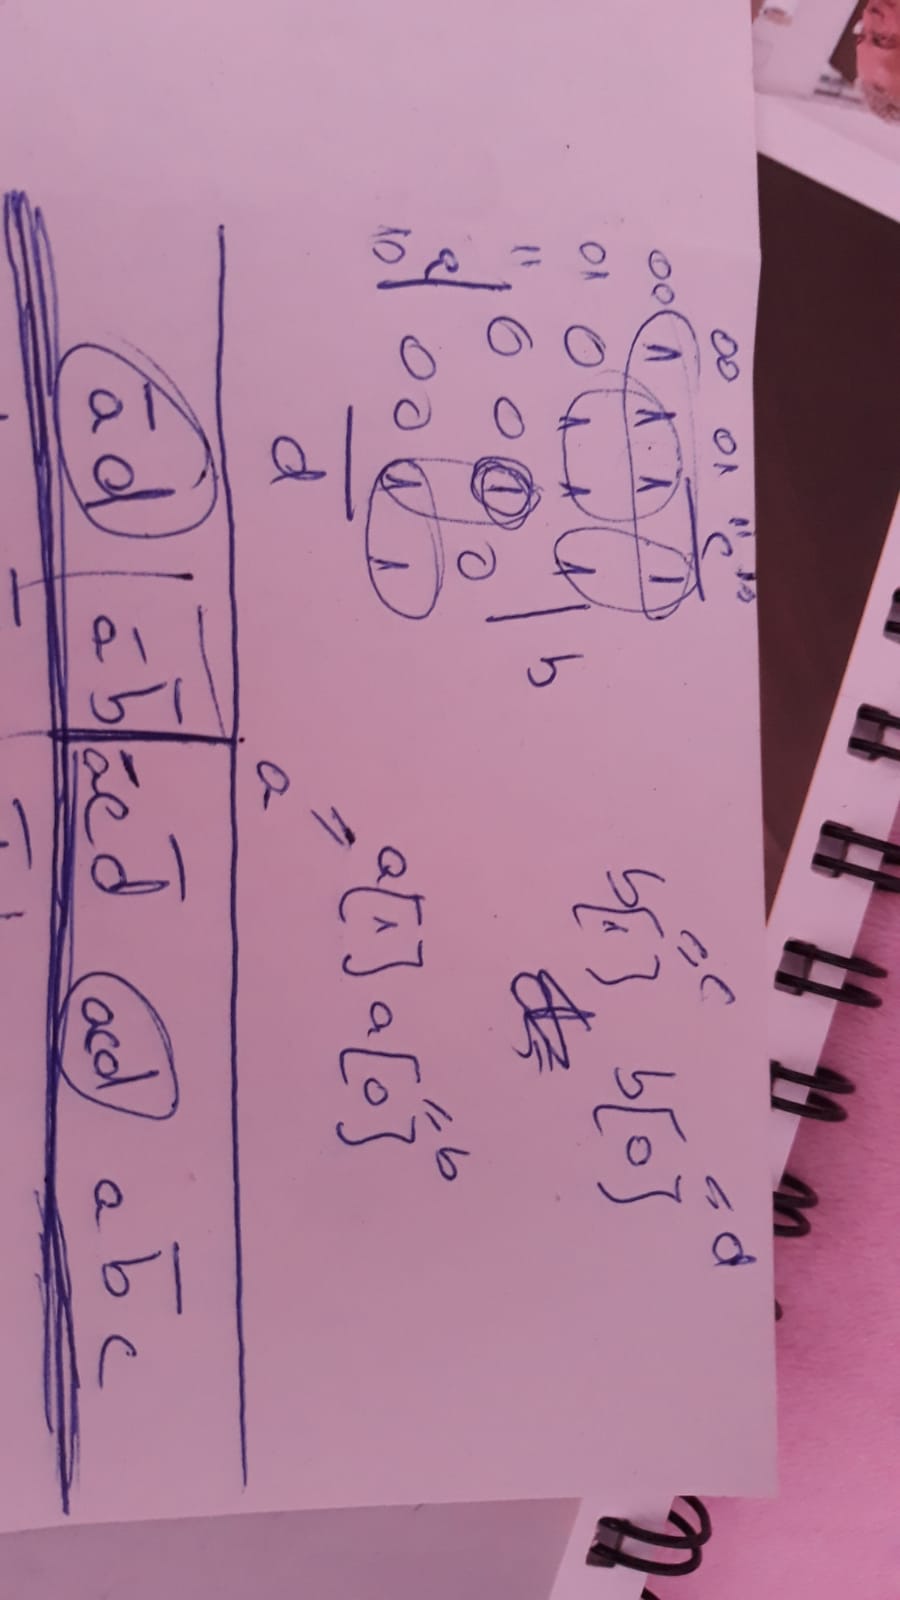 00 01 11 10
c
00 1 1 1 1
01 0 1 1 1
11 0 0 1 0
10 0 0 1 1
a
b
d
b[1] b[0]
= c
= d
a[1] a[0]
= a
= b
a̅d | a̅b̅ a̅cd̅ acd ab̅c